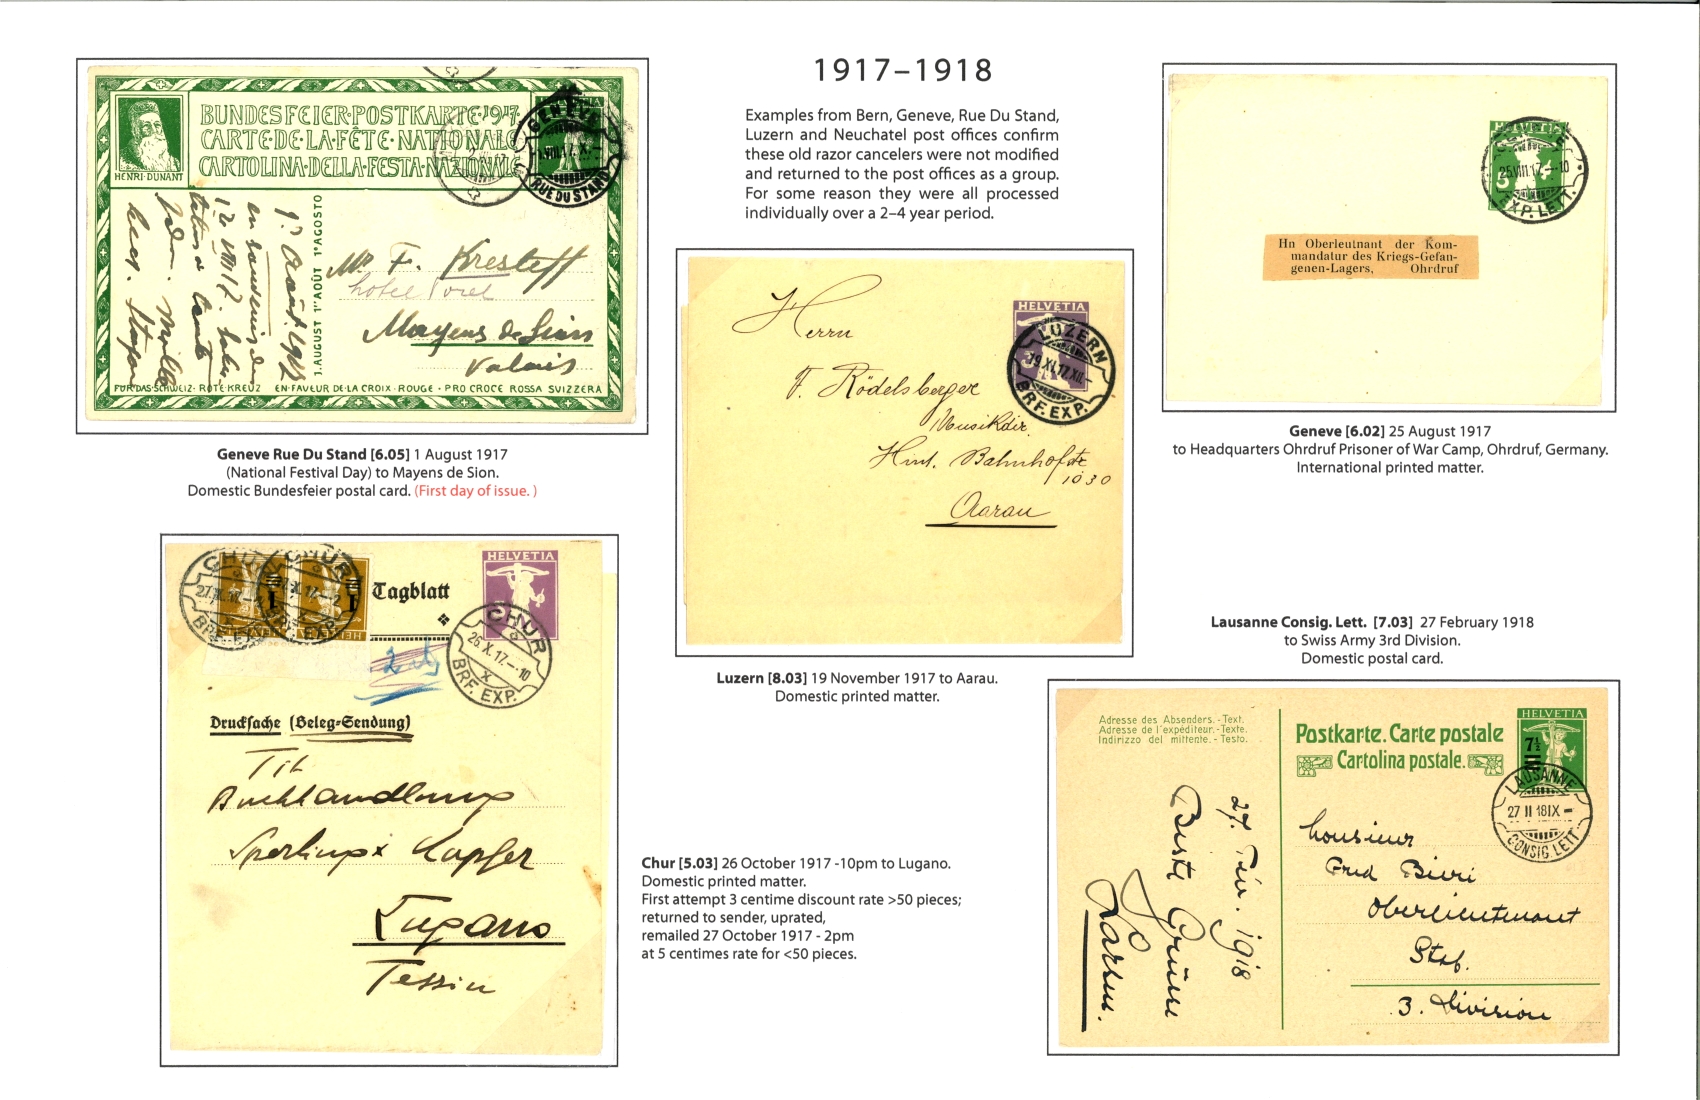 1917–1918
Examples from Bern, Geneve, Rue Du Stand,
Luzern and Neuchatel post offices confirm
these old razor cancelers were not modified
and returned to the post offices as a group.
For some reason they were all processed
individually over a 2–4 year period.
BUNDESFEIER-POSTKARTE·1917·
CARTE·DE·LA·FÊTE·NATIONALE
CARTOLINA·DELLA·FESTA·NAZIONALE
HENRI·DUNANT
HELVETIA
GENÈVE
1.VIII.17.X-
RUE DU STAND
1.AUGUST 1ER AOÛT 1º AGOSTO
1er Août 1917
en souvenir de
Mr. F. Kresteff
hotel
Mayens de Sion
Valais
FÜR·DAS·SCHWEIZ·ROTE·KREUZ EN·FAVEUR·DE·LA·CROIX·ROUGE · PRO CROCE ROSSA SVIZZERA
Geneve Rue Du Stand [6.05] 1 August 1917
(National Festival Day) to Mayens de Sion.
Domestic Bundesfeier postal card. (First day of issue. )
HELVETIA
25.VIII.17.–-10
EXP. LETT.
Hn Oberleutnant der Kom-
mandatur des Kriegs-Gefan-
genen-Lagers, Ohrdruf
Geneve [6.02] 25 August 1917
to Headquarters Ohrdruf Prisoner of War Camp, Ohrdruf, Germany.
International printed matter.
HELVETIA
LUZERN
19.XI.17.XII.–
BRF. EXP.
Herrn
F. Rödelsberger
Musikdir.
Hint. Bahnhofstr.
1030
Aarau
Luzern [8.03] 19 November 1917 to Aarau.
Domestic printed matter.
CHUR
CHUR
27.X.17.–-2
BRF. EXP.
BRF. EXP.
Tagblatt
HELVETIA
CHUR
26.X.17.–-10
X
BRF. EXP.
Drucksache (Beleg-Sendung)
Tit
Buchhandlung
Sperling & Kupfer
Lugano
Tessin
Chur [5.03] 26 October 1917 -10pm to Lugano.
Domestic printed matter.
First attempt 3 centime discount rate >50 pieces;
returned to sender, uprated,
remailed 27 October 1917 - 2pm
at 5 centimes rate for <50 pieces.
Lausanne Consig. Lett. [7.03] 27 February 1918
to Swiss Army 3rd Division.
Domestic postal card.
Adresse des Absenders. - Text.
Adresse de l'expéditeur. - Texte.
Indirizzo del mittente. - Testo.
Postkarte. Carte postale
Cartolina postale.
HELVETIA
7½
LAUSANNE
27 II 18 IX –
CONSIG. LETT.
27. Fév. 1918
Beste Grüsse
Monsieur
Fred Bieri
Oberlieutenant
Stab.
3. Division